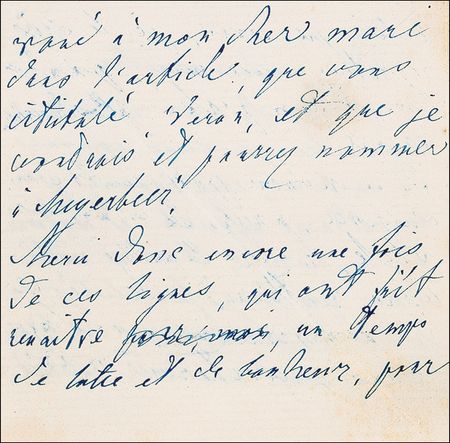 voué à mon cher mari
dans l'article, que vous
intitulé "Veron, et que je
voudrais et pourrez nommer
"Meyerbeer".
Merci donc encore une fois
de ces lignes, qui ont fait
renaître un temps
de lutte et de bonheur, pour